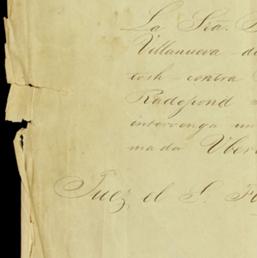 La Sra.
Villanueva de
tosh contra
Radepond
intervenga un
mada Ube
Juez el S. F